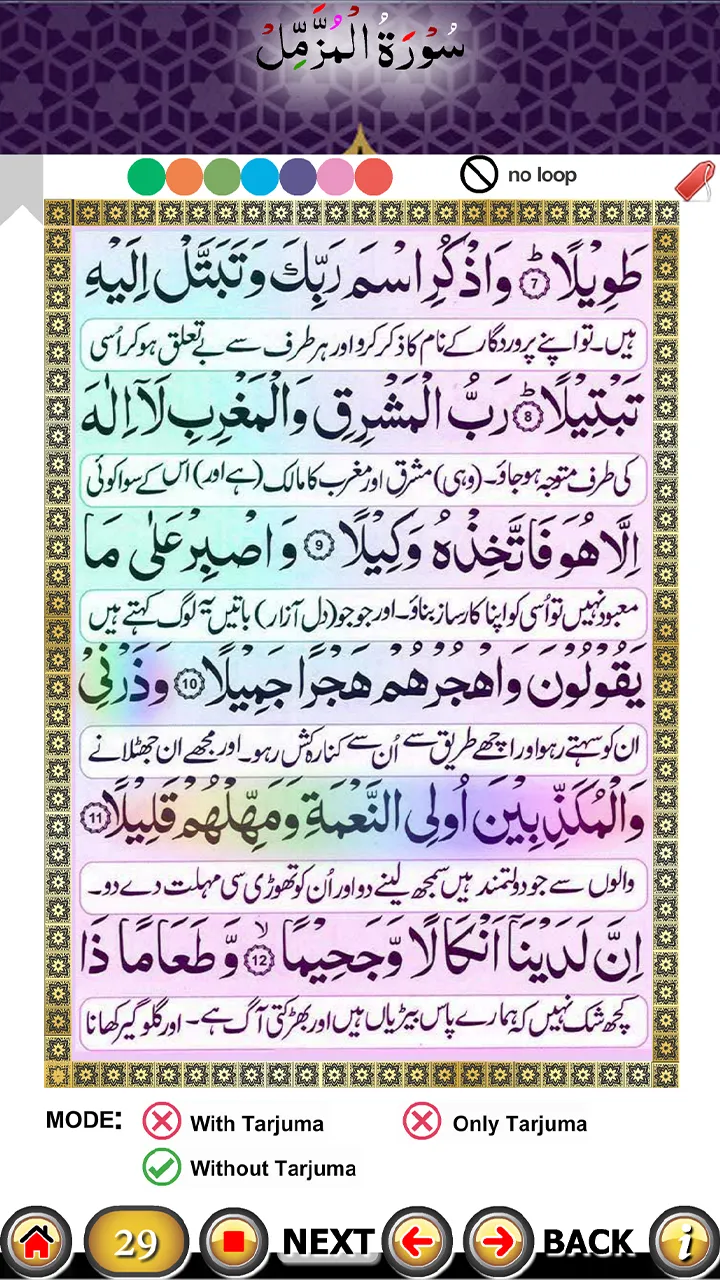 سُوْرَةُ الْمُزَّمِّلِ
no loop
طَوِيْلًا ؕ 7 وَاذْكُرِ اسْمَ رَبِّكَ وَتَبَتَّلْ اِلَيْهِ
ہیں۔ تو اپنے پروردگار کے نام کا ذکر کرو اور ہر طرف سے بے تعلق ہو کر اُسی
تَبْتِيْلًا ؕ 8 رَبُّ الْمَشْرِقِ وَالْمَغْرِبِ لَآ اِلٰهَ
کی طرف متوجہ ہو جاؤ۔ (وہی) مشرق اور مغرب کا مالک (ہے اور) اس کے سوا کوئی
اِلَّا هُوَ فَاتَّخِذْهُ وَكِيْلًا 9 وَاصْبِرْ عَلٰى مَا
معبود نہیں تو اُسی کو اپنا کارساز بناؤ۔ اور جو جو (دل آزار) باتیں یہ لوگ کہتے ہیں
يَقُوْلُوْنَ وَاهْجُرْهُمْ هَجْرًا جَمِيْلًا 10 وَذَرْنِيْ
ان کو سہتے رہو اور اچھے طریق سے اُن سے کنارہ کش رہو۔ اور مجھے ان جھٹلانے
وَالْمُكَذِّبِيْنَ اُولِى النَّعْمَةِ وَمَهِّلْهُمْ قَلِيْلًا 11
والوں سے جو دولتمند ہیں سمجھ لینے دو اور اُن کو تھوڑی سی مہلت دے دو۔
اِنَّ لَدَيْنَآ اَنْكَالًا وَّجَحِيْمًا ۙ 12 وَّطَعَامًا ذَا
کچھ شک نہیں کہ ہمارے پاس بیڑیاں ہیں اور بھڑکتی آگ ہے۔ اور گلوگیر کھانا
MODE: With Tarjuma Only Tarjuma
Without Tarjuma
29 NEXT BACK i